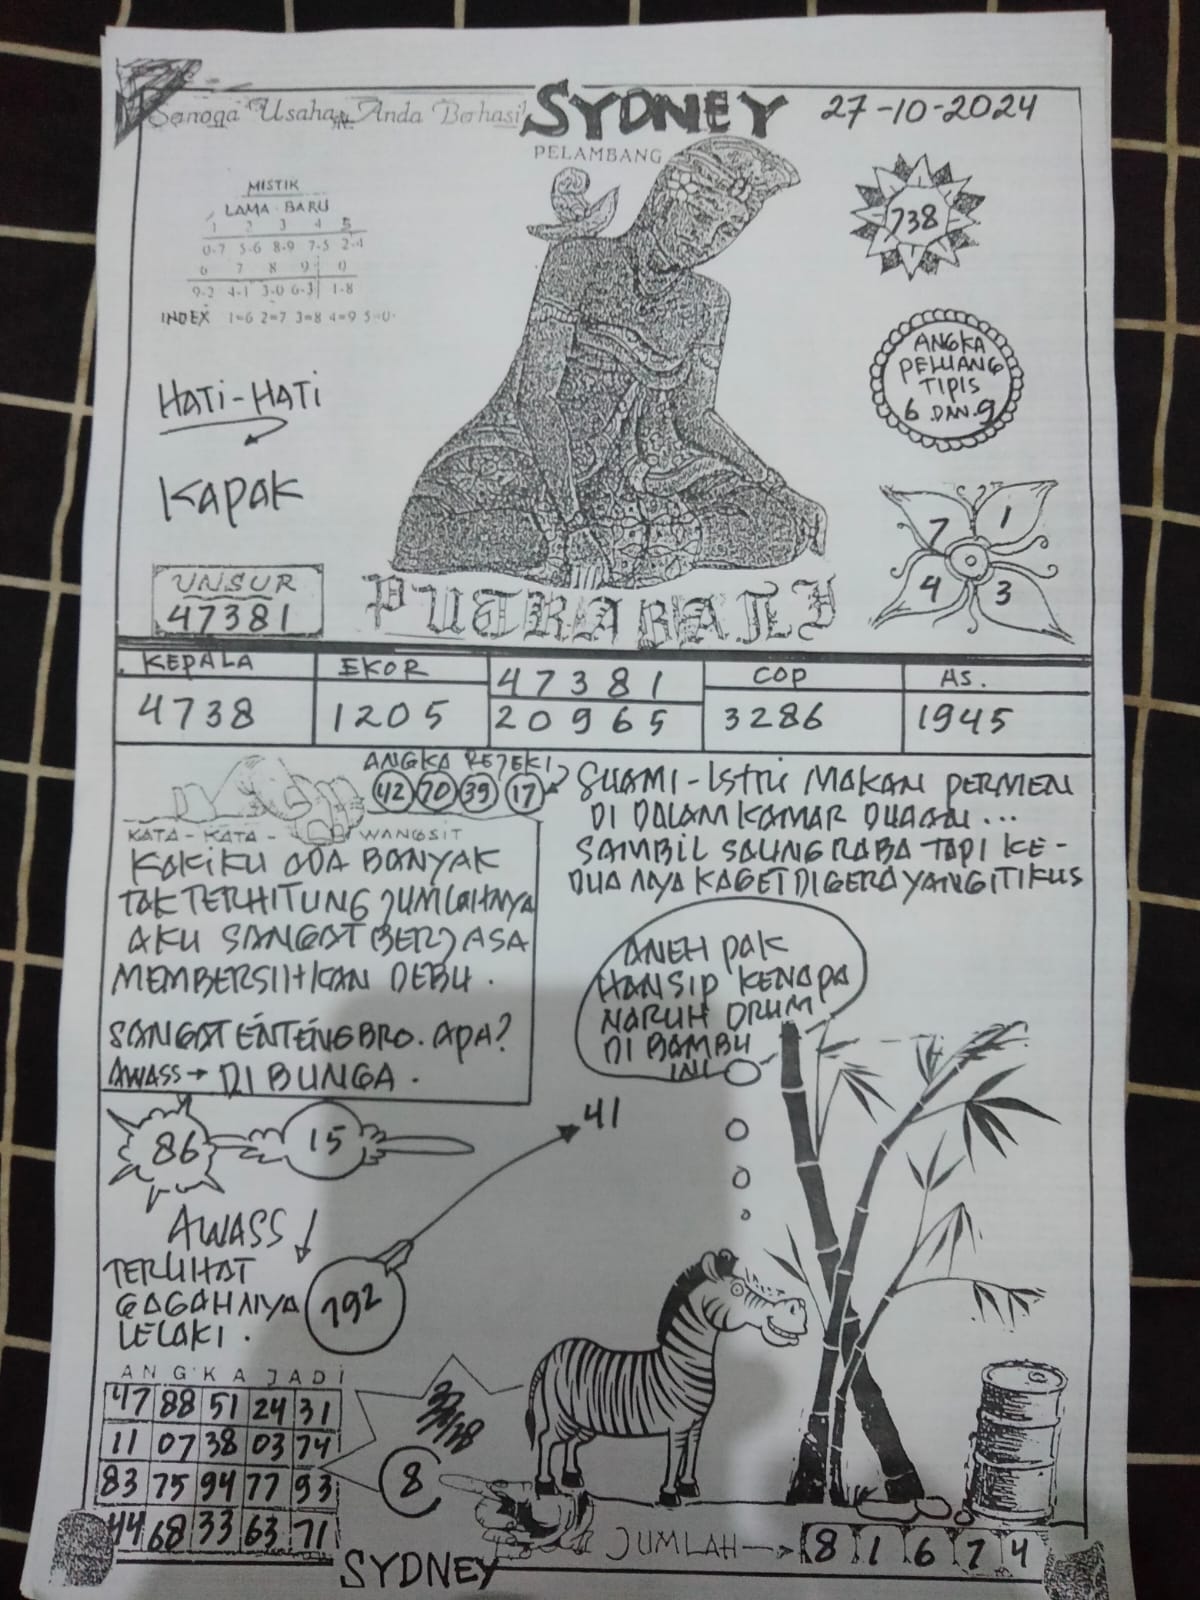 Semoga Usaha Anda Berhasil
SYDNEY
27-10-2024
PELAMBANG
MISTIK
LAMA - BARU
1 2 3 4 5
0-7 5-6 8-9 7-5 2-4
6 7 8 9 0
9-2 4-1 3-0 6-3 1-8
INDEX 1=6 2=7 3=8 4=9 5=0
738
ANGKA
PELUANG
TIPIS
6 DAN 9
HATI-HATI
KAPAK
7 1
4 3
UNSUR
47381
PUTRA BALI
KEPALA
4738
EKOR
1205
47381
20965
COP
3286
AS.
1945
ANGKA REJEKI
42 70 39 17
SUAMI-ISTRI MAKAN PERMEN
DI DALAM KAMAR DUAAN...
SAMBIL SALING RABA TAPI KE-
DUANYA KAGET DIGERAYANGI TIKUS
KATA-KATA-WANGSIT
KAKIKU ADA BANYAK
TAK TERHITUNG JUMLAHNYA
AKU SANGAT (BER) JASA
MEMBERSIHKAN DEBU.
SANGAT ENTENG BRO. APA?
AWASS → DI BUNGA.
ANEH PAK
HANSIP KENAPA
NARUH DRUM
DI BAMBU
INI
86 15
41
AWASS
TERLIHAT
GAGAHNYA
LELAKI.
792
ANGKA JADI
47 88 51 24 31
11 07 38 03 74
83 75 94 77 93
44 68 33 63 71
8
JUMLAH → 8 1 6 7 4
SYDNEY